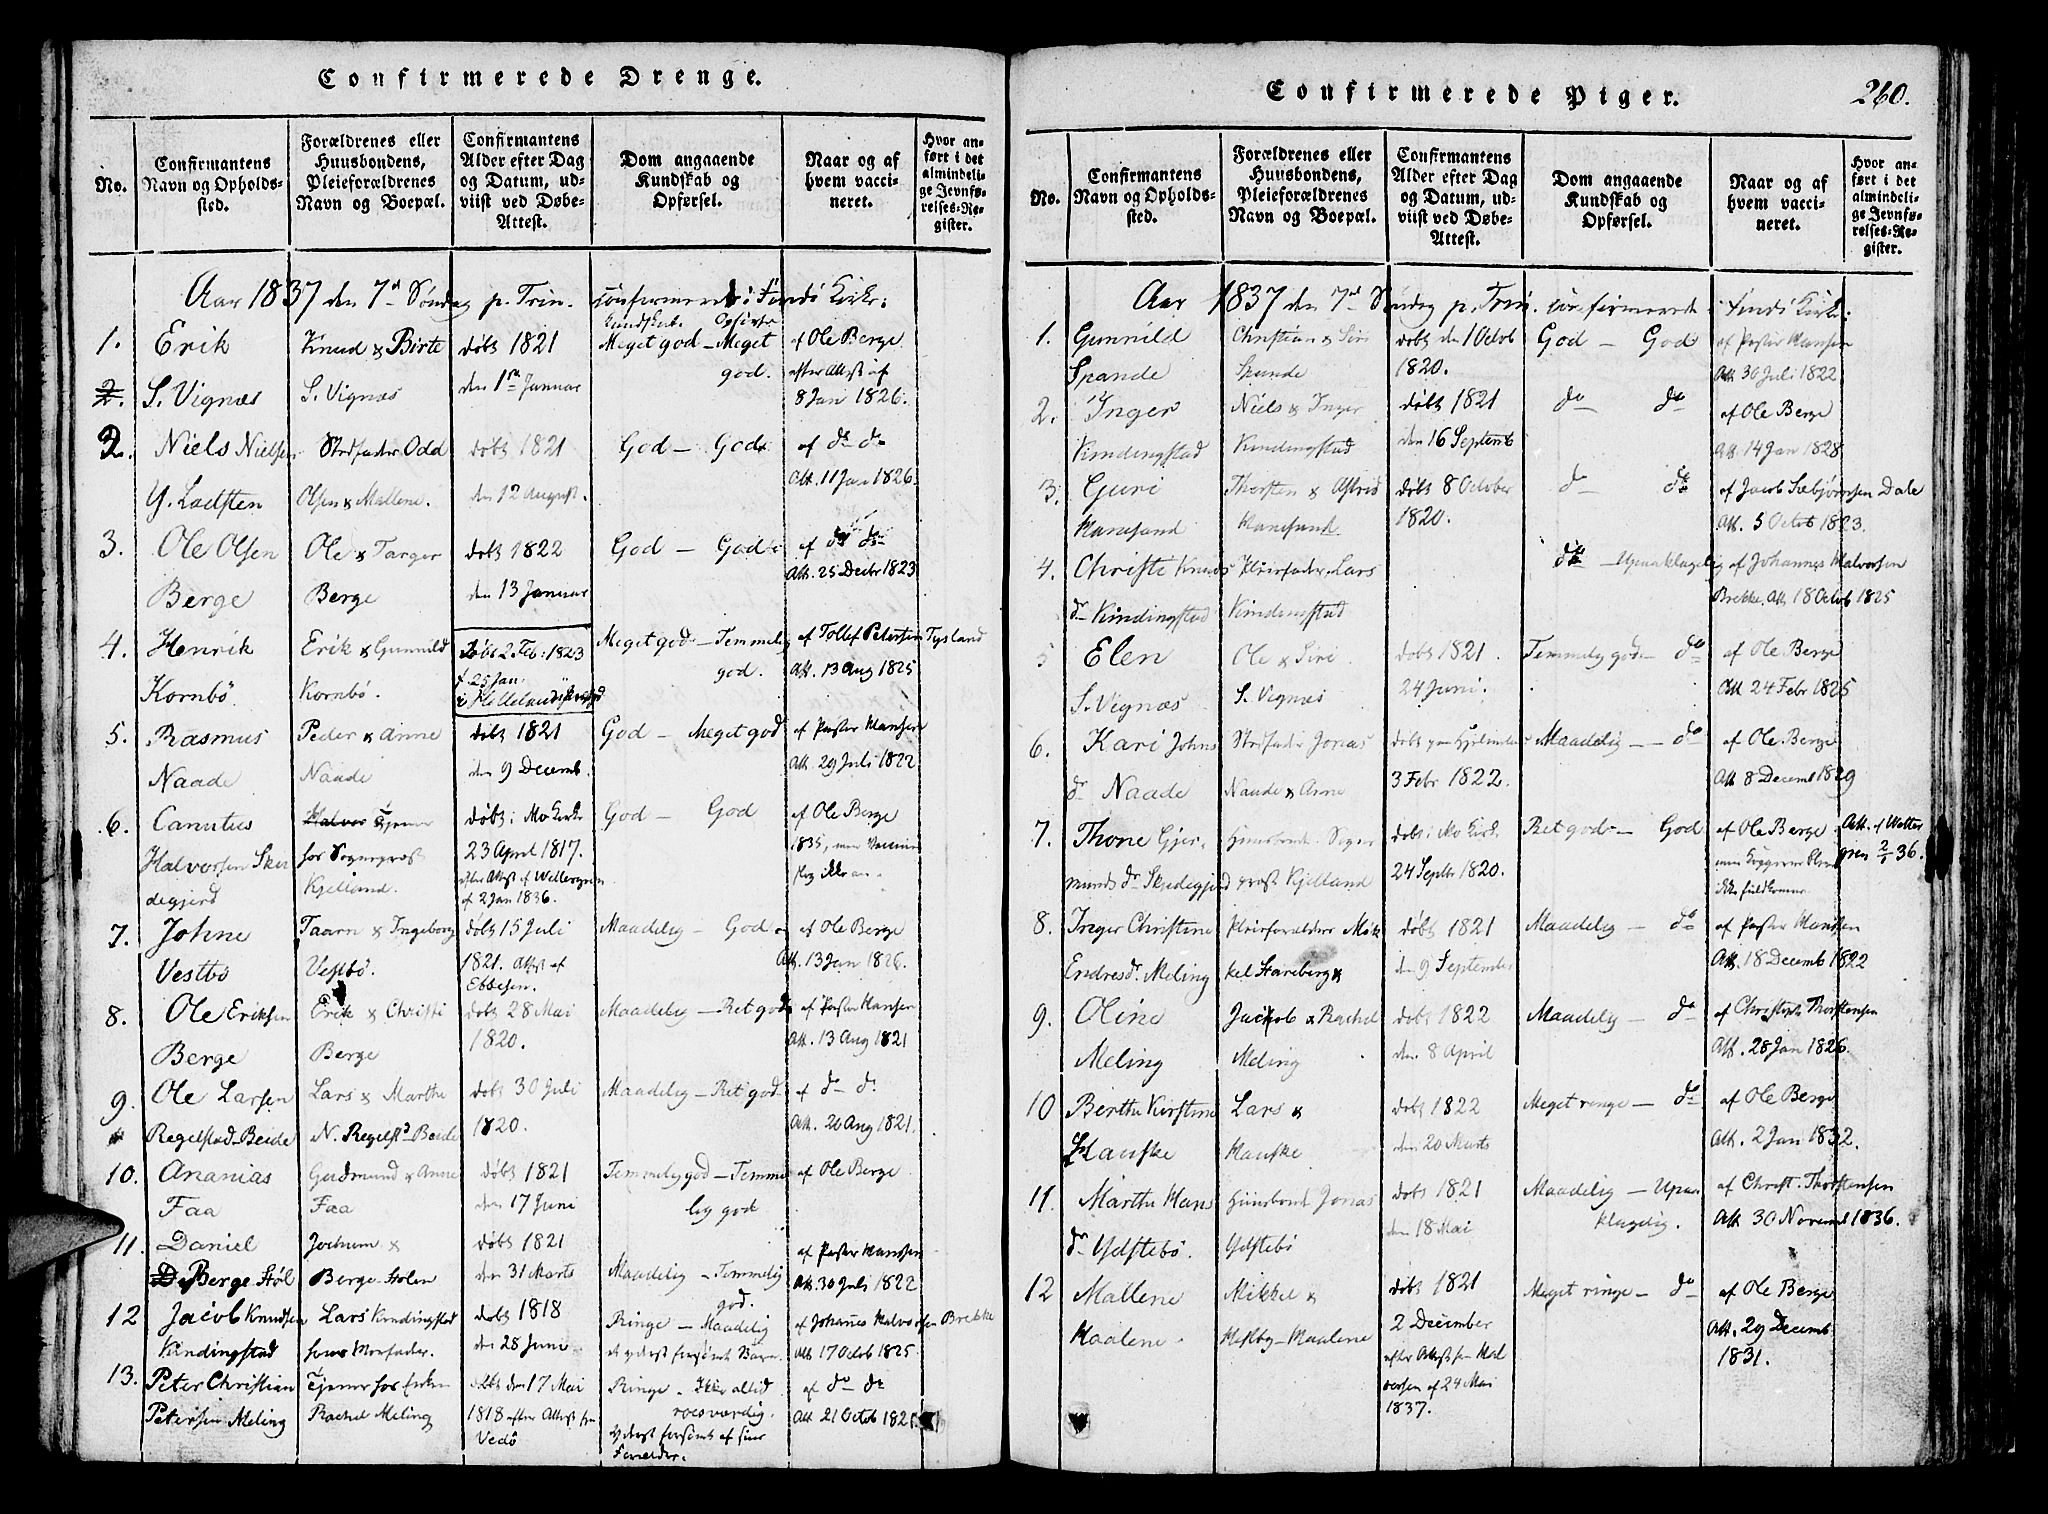 Confirmerede Drenge.
No.
Confirmantens Navn og Opholds-sted.
Forældrenes eller Huusbondens, Pleieforældrenes Navn og Boepæl.
Confirmantens Alder efter Dag og Datum, ud-viist ved Døbe-Attest.
Dom angaaende Kundskab og Opførsel.
Naar og af hvem vacci-neret.
Hvor an-ført i det almindeli-ge Jevnfø-relses-Re-gister.
Aar 1837 den 7de Søndag p. Trin. confirmerede i Findö Kirke:
Kundskab. Opførsel
1. Erik Knud & Birte døbt 1821 Meget god — Meget af Ole Berge
god. efter Attest af
2. S. Vignæs S. Vignæs den 1ste Januar 8 Jan 1826.
2. Niels Nielsen Stedfader Odd døbt 1821 God — God af do do
Y. Ladsten Olsen & Mallene. den 12 August. Att. 11 Jan 1826.
3. Ole Olsen Ole & Targer døbt 1822 God — God af do do
Berge Berge den 13 Januar Att. 25 Decbr 1823
4. Henrik Erik & Gunnild Døbt 2 Feb: 1823 Meget god — Temmelig af Tollef Petersen Tysland
f. 25 Jan. god. Att. 13 Aug 1825
Kornbö Kornbö. i Hellelands
5. Rasmus Peder & Anne døbt 1821 God — Meget god af Pastor Hansen
Naade Naade den 9 Decemb. Att. 29 Juli 1822
6. Canutus Halvor Tjener døbt i Mo Kirke God — God af Ole Berge
Halvorsen Sken for Sogneprest 23 April 1817. 1835, men Vaccinen
degjerd Kjelland. efter Attest af Wettergreen slog ikke an.
af 2 Jan 1836.
7. Johne Taarn & Ingeborg døbt 15 Juli Maadelig — God af Ole Berge
Vestbö Vestbö. 1821. Attest af Att. 13 Jan 1826.
Ebbesen.
8. Ole Eriksen Erik & Christi døbt 28 Mai Maadelig — Ret god af Pastor Hansen
Berge Berge 1820. Att. 13 Aug 1821
9. Ole Larsen Lars & Marthe døbt 30 Juli Maadelig — Ret god af do do
Regelstad-Beide N. Regelstd Beide 1820. Att. 20 Aug 1821.
10. Ananias Gudmund & Anne døbt 1821 Temmelig god — Temme af Ole Berge
Faa Faa den 17 Juni lig god
11. Daniel Jochum & døbt 1821 af Pastor Hansen
Berge Støl Berge-Stølen den 31 Marts Maadelig — Temmelig Att. 30 Juli 1822
god.
12 Jacob Knudsen Lars Kindingstad døbt 1818 Ringe — Maadelig af Johannes Halvorsen Brekke
Kindingstad hans Morfader. den 28 Juni et yderst forsømt Barn. Att. 17 Octob 1825
13. Peter Christian Tjener for Enken døbt den 17 Mai Ringe — Ikke altid af do do
Petersen Meling Rachel Meling 1818 efter Attest fra roesværdig. Att. 21 Octob
Vedö yderst forsömt af sine
Forældre.
Confirmerede Piger.
260.
No.
Confirmantens Navn og Opholds-sted.
Forældrenes eller Huusbondens, Pleieforældrenes Navn og Boepæl.
Confirmantens Alder efter Dag og Datum, ud-viist ved Døbe-Attest.
Dom angaaende Kundskab og Opførsel.
Naar og af hvem vacci-neret.
Hvor an-ført i det almindeli-ge Jevnfø-relses-Re-gister.
Aar 1837 den 7de Søndag p. Trin. confirmerede i Findö Kirke:
1. Gunnild Christian & Siri døbt den 1 Octob God — God af Pastor Hansen
Spande Spande 1820. Att. 30 Juli 1822
2. Inger Niels & Inger døbt 1821 do do af Ole Berge
Kindingstad Kindingstad den 16 Septemb Att. 14 Jan 1828
3. Guri Thorsten & Astrid døbt 8 October do do af Jacob Sæbjörnsen Dale
Hanesand Hanesand. 1820. Att. 5 Octob 1823.
4. Christi Knuds Pleiefader Lars do — Upaaklagelig af Johannes Halvorsen
dr Kindingstad Kindingstad Brekke. Att. 18 Octob 1825
5 Elen Ole & Siri. døbt 1821. Temmelig god — do af Ole Berge
S. Vignæs S. Vignæs 24 Juni. Att 24 Febr 1825
6. Kari Johns Stedfader Jonas døbt Maadelig — do af Ole Berge
dr Naade Naade & Anne 3 Febr 1822. Att 8 Decemb 1829
7. Thone Gjer- Huusbonde Sogne døbt i Mo Kirke Ret god — God af Ole Berge Att. af Wetter
munds dr Skeidegjerd prest Kjelland 24 Septbr 1820. men Kopperne bleve green 2/1 36.
ikke fuldkomne
8. Inger Christine Pleieforældre Mik døbt 1821 Maadelig — do af Pastor Hansen
Endresdr. Meling kel Stareberg & den 9 September Att. 18 Decemb 1822
9. Oline Jacob & Rachel døbt 1822 Maadelig — do af Christoph Thorstensen
Meling Meling den 8 April Att. 28 Jan 1826.
10 Berthe Kirstine Lars & døbt 1822 Meget ringe — do af Ole Berge
Hauske Hauske den 20 Marts Att. 2 Jan 1832.
11. Marthe Hans Huusbond Jonas døbt 1821 Maadelig — Upaa af Christ. Thorstensen
dr Ydstebö. Ydstebö den 18 Mai klagelig. Att 30 Novemb 1836.
12 Mallene Mikkel & døbt 1821 Meget ringe — do af Ole Berge
Haalene Hestby-Haalene 2 December Att. 29 Decemb
efter Attest fra Hal 1831.
vorsen af 24 Mai
1837.